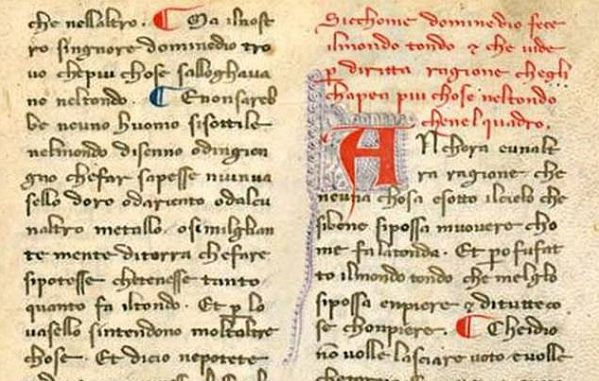 che nellaltro. ¶ Ma ilnost
ro singnore domodio tro
vo chepiu chose salloghava
no neltondo. ¶ Enonsareb
be neuno huomo sisottile
nelmondo disenno odingien
gno chefar sapesse niunva
sello doro odariento odalcu
naltro metallo. osimilglian
te mente diterra chefare
sipotesse chetenesse tanto
quanto fa iltondo. Et p lo
vasello sintendono moltaltre
chose. Et dicio nepotete
Sicchome domenedio fece
ilmondo tondo e che vide
p diritta ragione chegli
chapea piu chose neltondo
chenel quadro.
ANchora evnalt
ra ragione che
neuna chosa esotto ilcielo che
sibene sipossa muovere cho
me fa latonda. Et po fufat
to ilmondo tondo che melglo
sipossa enpiere e ditutteco
se chonpiere. ¶ Cheidio
no volle lasciare voto evolle